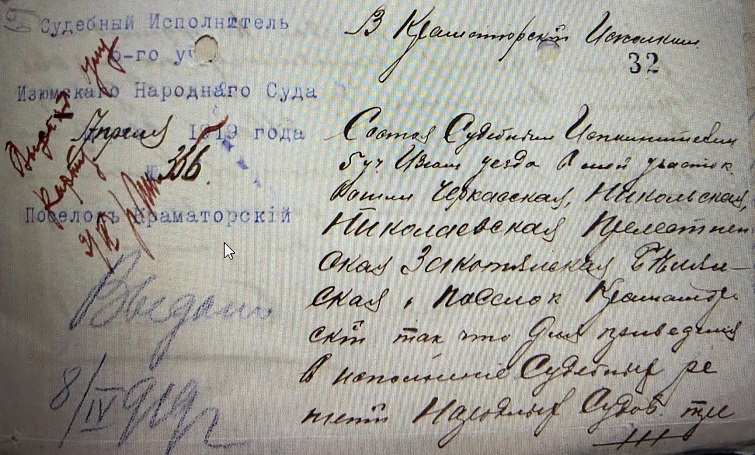 Судебный Исполнитель
5-го уч
Изюмскаго Народнаго Суда
Апреля 1919 года
№ 256.
Поселокъ Краматорскій
Выдать
карту
Введано
8/IV 919 г
В Краматорскій Исполком
32
Состоя Судебным Исполнителем
5 уч. Изюм уезда в мой участок
вошли Черкасская, Никольская,
Николаевская Прелестнен
ская Закотянская Биля-
ская и поселок Краматор
скій так что для приведения
в исполнение Судебных ре
шений Народных Судов